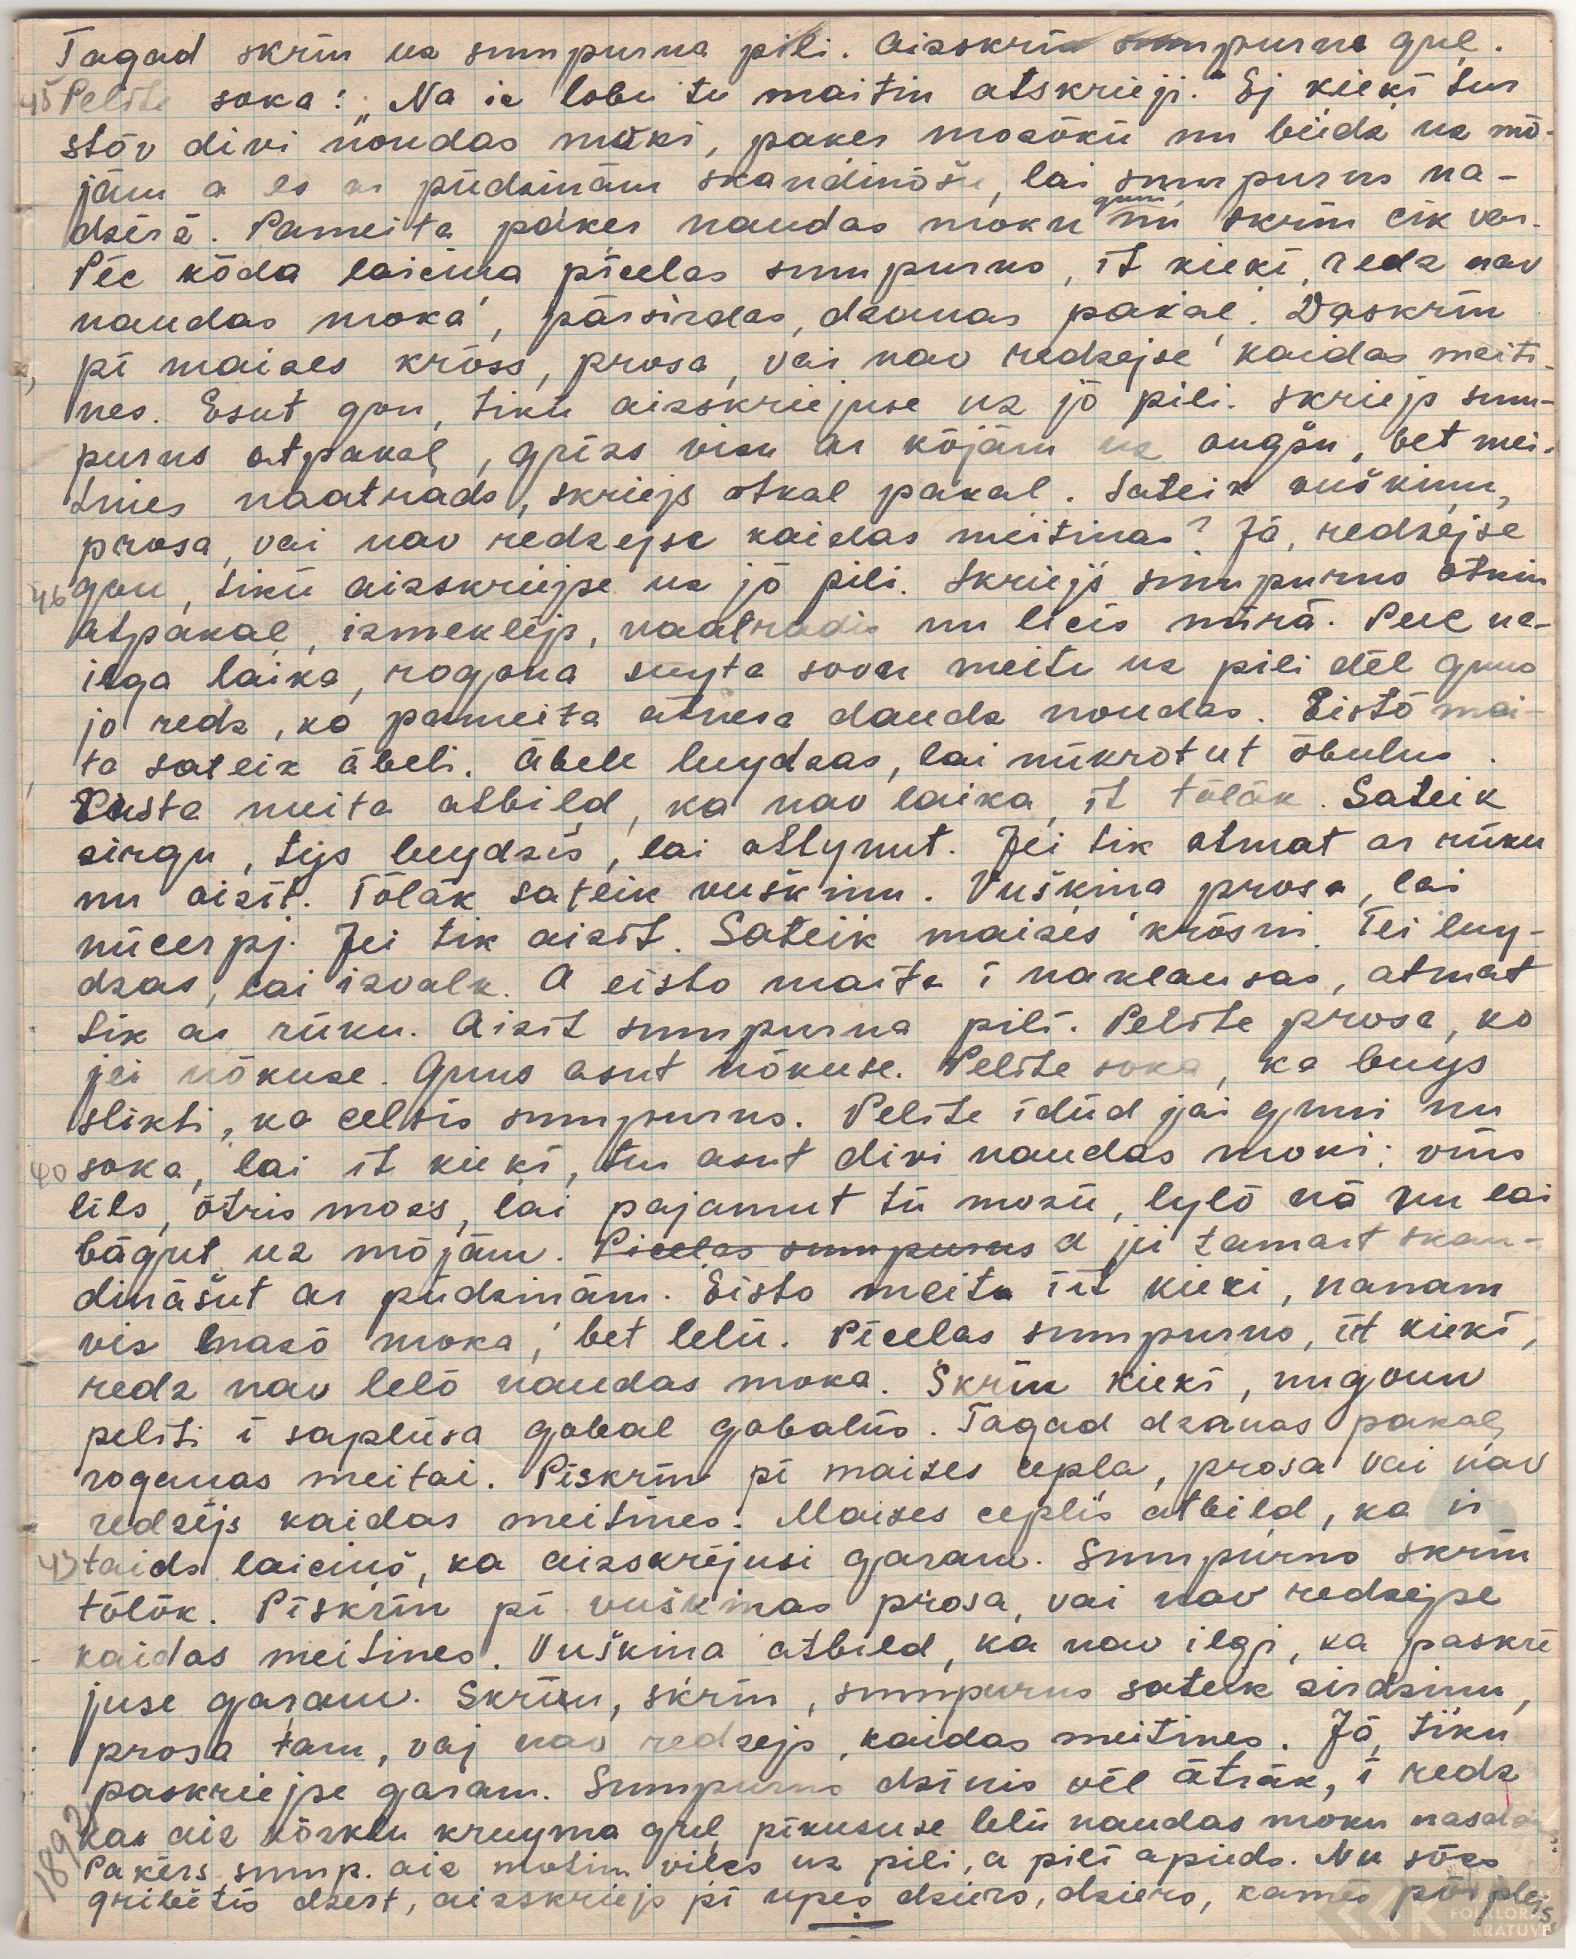 Tagad skrīn uz sumpurna pili. Aizskrīn sumpurns guļ.
45 Pelīte soka: „Na iz lobu tu maitiņ atskrieji." Ej kiekī tur
stōv divi noudas moki, paker mozōkū nu bēdz uz mō-
jām a es ar pūdziņām skandinōšu, lai sumpurns na-
dzērd. Pameita paker naudas moku guni nu skrīn cik var.
Pēc kōda laiciņa pīcelas sumpurns, īt kiekī, redz nav
naudas moka, pārsirdas, dzanas pakaļ. Daskrīn
pi maizes krōss, prosa, vai nav redzejse kaidas meiti-
nes. Esut gon, tikū aizskriejuse uz jō pili. Skriejs sum-
purns atpakaļ, grīzs visu ar kōjām uz augšu, bet mei-
tines naatrads, skriejs atkal pakaļ. Sateik vušķinu,
prosa, vai nav redzejse kaidas meitinas? Jā, redzejse
46 gon, tikū aizskriejse uz jō pili. Skriejs sumpurns otkin
atpakaļ, izmeklejs, naatradis nu licis mīrā. Pēc na-
ilga laika, rogona syuta sovu meitu uz pili dēļ guns
jo redz, ka pameita atnesa daudz noudas. Eistō mei-
ta sateik ābeli. Ābele luydzas, lai nūkrotut ōbulus.
Eista meita atbild, ka nav laika, īt tōlāk. Sateik
zirgu, tys luydzis, lai atlynut. Jei tik atmat ar rūku
nu aizīt. Tōlāk sateik vušķinu. Vušķina prosa, lai
nūcerpj. Jei tik aizīt. Sateik maizes krōsni. Tei luy-
dzas, lai izvalk. A eisto maita i naklausas, atmat
tik ar rūku. Aizīt sumpurna pilī. Pelīte prosa, ko
jei nōkuse. Guns asut nōkuse. Pelīte soka, ka buys
slikti, ka celsis sumpurns. Pelīte īdūd jai guni nu
40 soka, lai īt kiekī, tur asut divi naudas moki; vīns
lils, ōtris mozs, lai pajamut tū mozū, lylō nā nu lai
bāgut uz mōjām. Picelas sumpurns a jei tamart skan-
dināšut ar pūdzinām. Eisto meita īt kiekī, nanam
vis mazō moka, bet lelū. Pīcelas sumpurns, īt kiekī,
redz nav lelō naudas moka. Skrīn kiekī, nugoun
peliti i saplūsa gobal gobalūs. Tagad dzanas pakaļ
roganas meitai. Pīskrīn pi maizes cepļa, prosa vai nav
redzējs kaidas meitines. Maizes ceplis atbild, ka ir
43 taids laiciņš, ka aizskrējusi garam. Sumpurns skrīn
tōlōk. Pīskrīn pi vušķinas prosa, vai nav redzejse
kaidas meitines. Vušķina atbild, ka nav ilgi, ka paskrē
juse garam. Skrīn, skrīn, sumpurns sateik zirdziņu,
prosa tam, vaj nav redzejs kaidas meitines. Jā, tikū
paskriejse garam. Sumpurns dzīnis vēl ātrāk, i redz
ka aiz kōrklu kruyma guļ pīkususe lelū naudas moku
Pakērs sump. aiz motim vilcs uz pili, a pilī apieds. Nu sōcs
gribētis dzert, aizskriejs pi upes dziers, dziers, kamēr pōrplejs.
1892
FOLKLORAS
KRATUVE